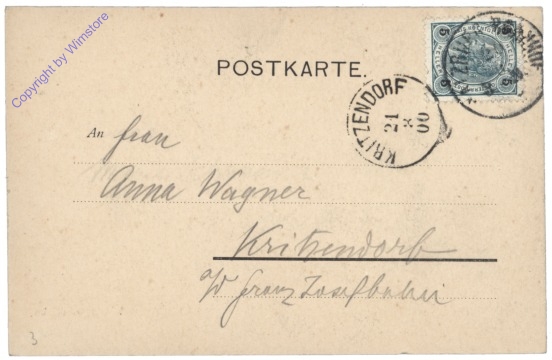 Copyright by Wimstore
POSTKARTE.
KRITZENDORF
21
X
00
5 5
HELLER HELLER
An Frau
Anna Wagner
Kritzendorf
a/d Franz Josefbahn
3